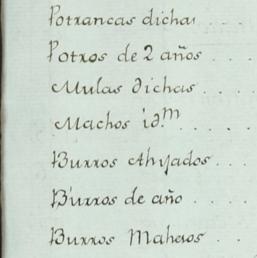 Potrancas dichas . . .
Potros de 2 años . . . .
Mulas dichas . . . .
Machos id.m . . . .
Burros Ahijados . . .
Burros de año . . . .
Burros Mahesos . . .